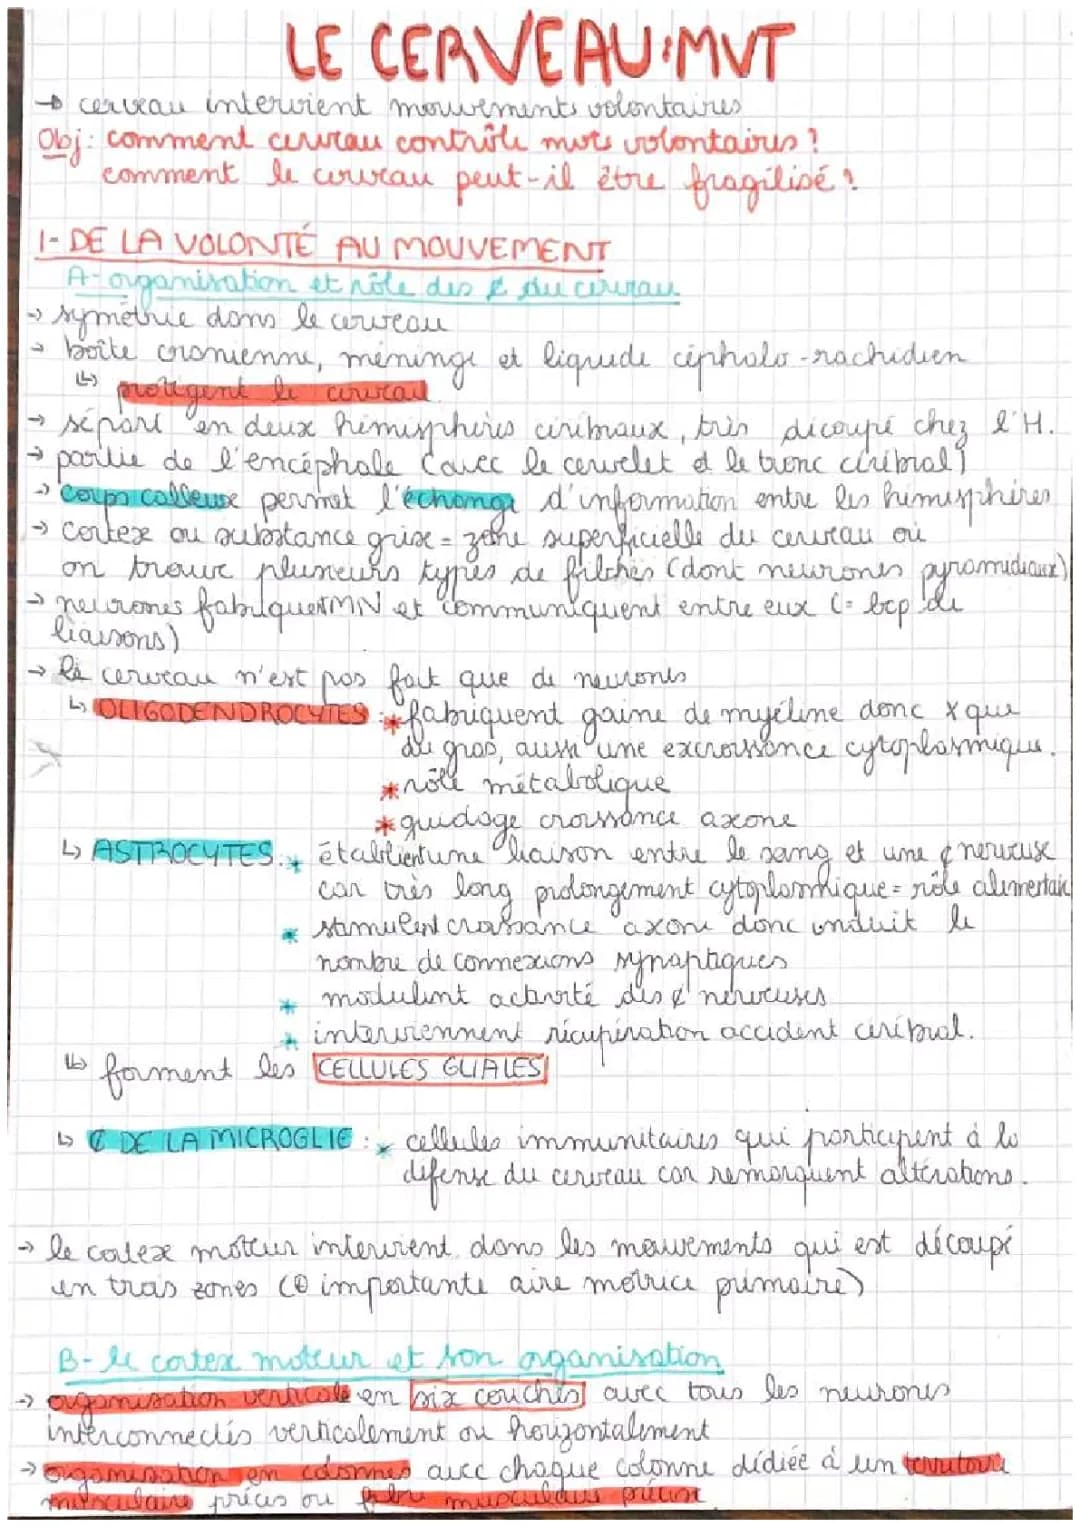 LE CERVEAU:MVT
→ cerveau intervient mouvements volontaires
Obj: comment cerveau contrôle mvts volontaires?
comment le cerveau peut-il être fragilisé?
I- DE LA VOLONTÉ AU MOUVEMENT
A- organisation et rôle des ȼ du cerveau
→ symétrie dans le cerveau
→ boîte cranienne, méninge et liquide céphalo-rachidien
↳ protègent le cerveau
→ séparé en deux hémisphères cérébraux, très découpé chez l'H.
→ partie de l'encéphale (avec le cervelet et le tronc cérébral)
→ corps calleux permet l'échange d'information entre les hémisphères
→ cortex ou substance grise = zone superficielle du cerveau où
on trouve plusieurs types de (dont neurones pyramidaux)
→ neurones fabriquent MN et communiquent entre eux (= bcp de
liaisons)
→ le cerveau n'est pas fait que de neurones
↳ OLIGODENDROCYTES : * fabriquent gaine de myéline donc x que
du gras, aussi une excroissance cytoplasmique.
* rôle métabolique
* guidage croissance axone
↳ ASTROCYTES : * établient une liaison entre le sang et une ȼ nerveuse
car très long prolongement cytoplasmique = rôle alimentaire
* stimulent croissance axone donc induit le
nombre de connexions synaptiques
* modulent activité des ȼ nerveuses
* interviennent récupération accident cérébral.
↳ forment les CELLULES GLIALES
↳ ȼ DE LA MICROGLIE : * cellules immunitaires qui participent à la
défense du cerveau car remarquent altérations.
→ le cortex moteur intervient dans les mouvements qui est découpé
en trois zones (⊕ importante aire motrice primaire)
B- le cortex moteur et son organisation
→ organisation verticale en six couches avec tous les neurones
interconnectés verticalement ou horizontalement
→ organisation en colonnes avec chaque colonne dédiée à un territoire
musculaire précis ou fibre musculaire précise